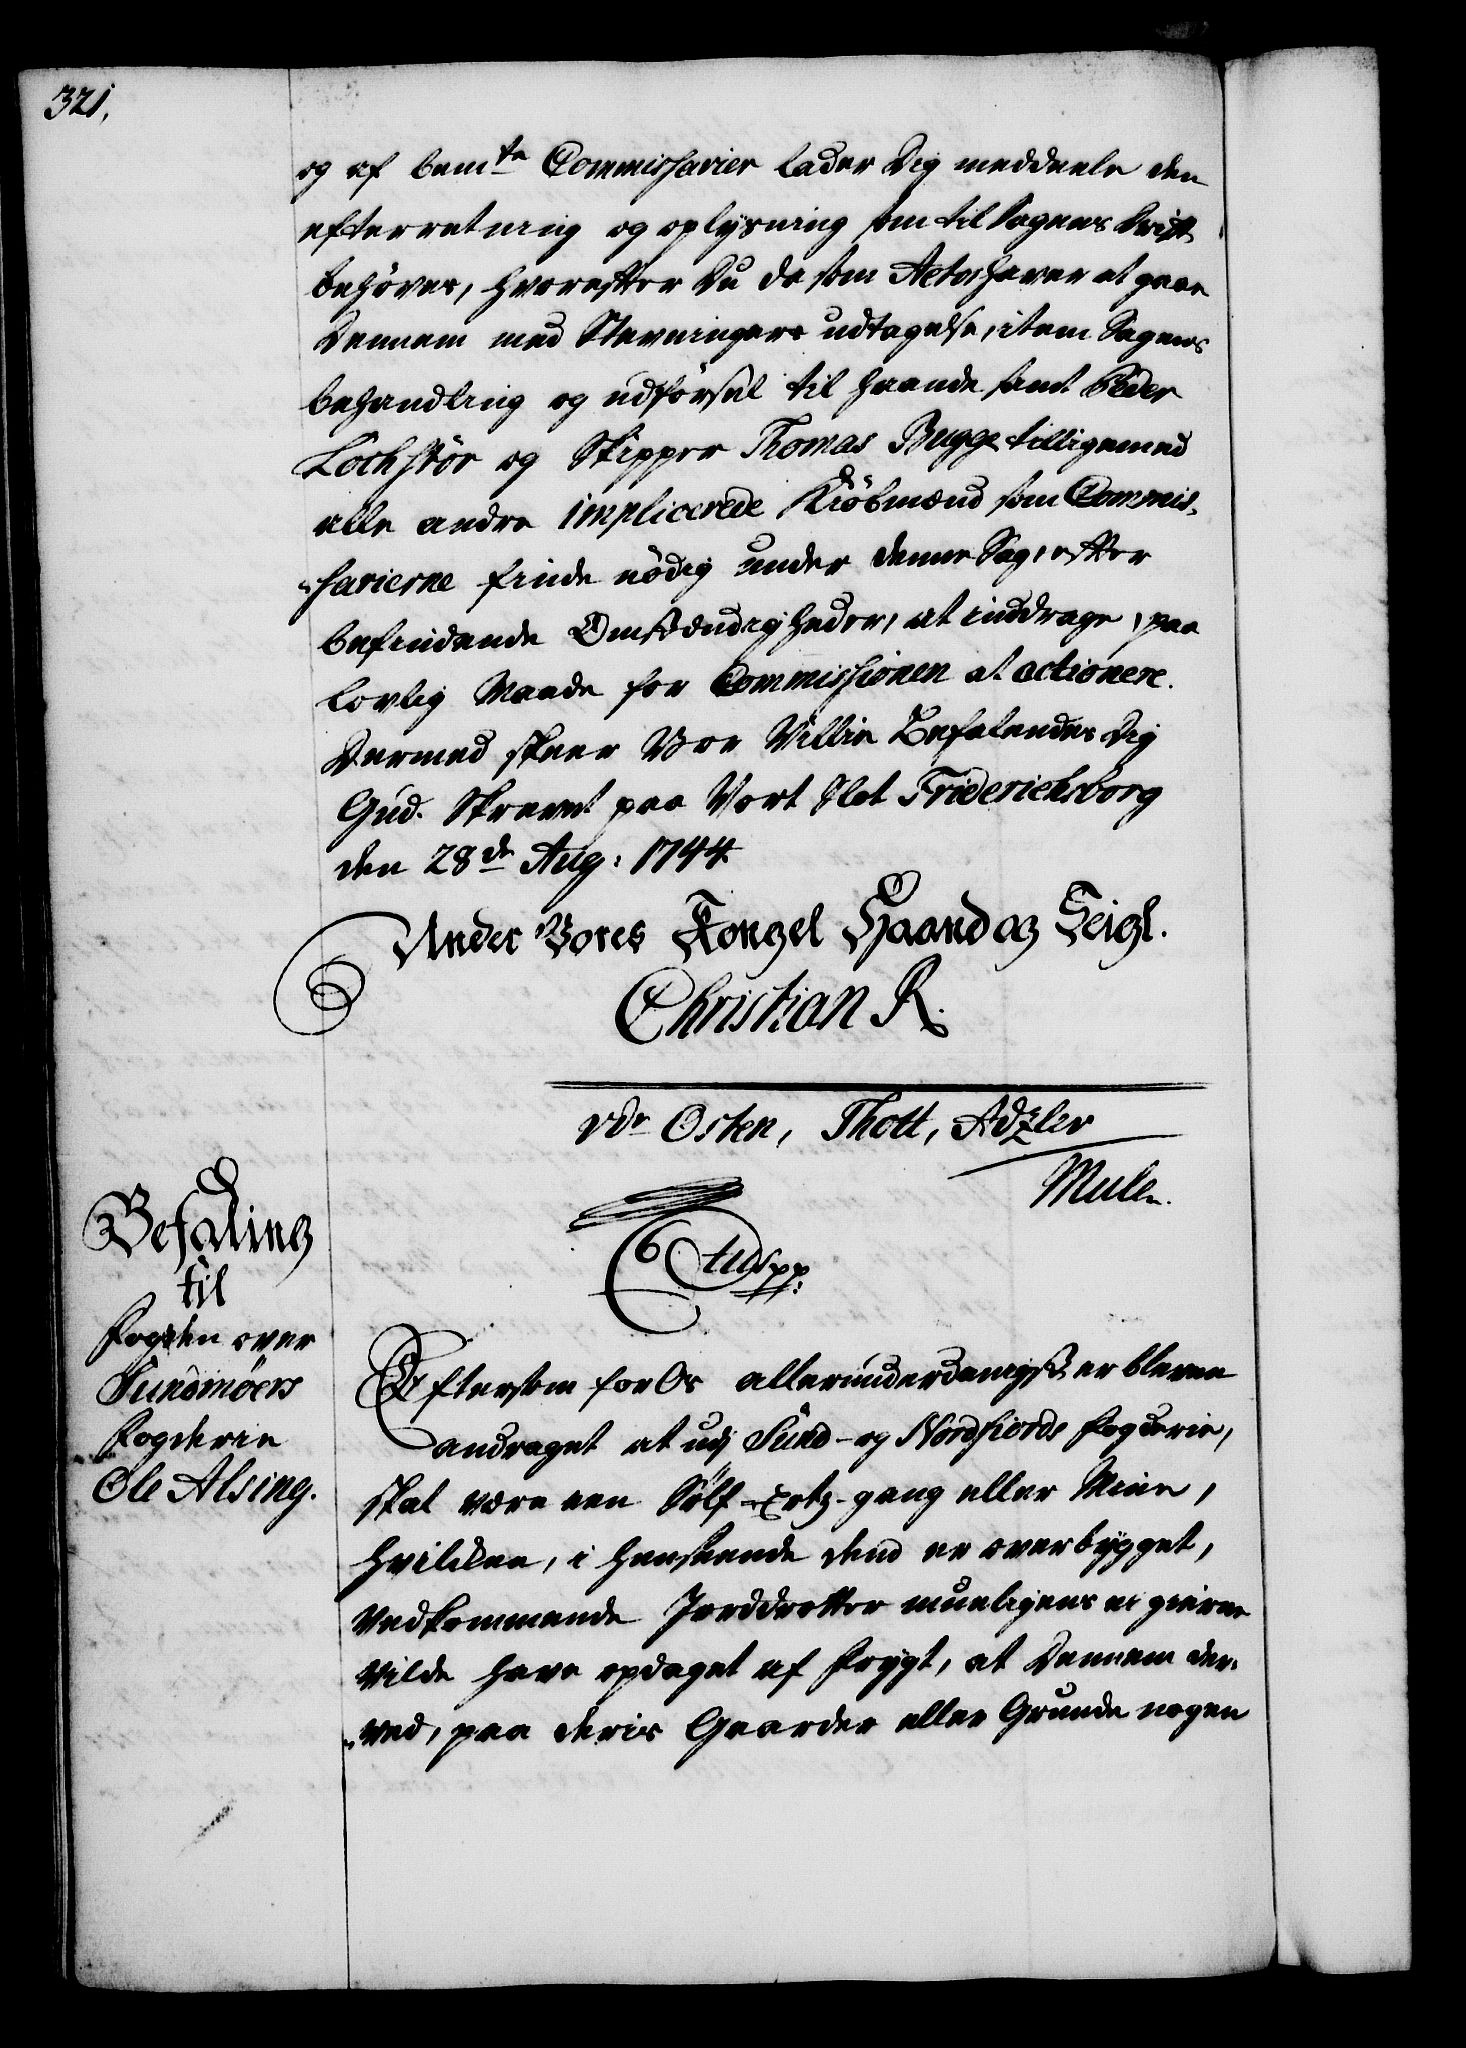 321.
og af bem.te Commissarier lader Dig meddeele den
efterretning og oplysning som til Sagens Drift
behöves, hvorefter Du da som Actor haver at gaae
Dennem med Stevningers udtagelse, item Sagens
behandling og udförsel til haande samt Peder
Lochstör og Skipper Thomas Bugge tilligemed
alle andre implicerede Kiöbmænd som Commis-
sarierne finde nödig under denne Sag, efter
befindende Omstændigheder, at inddrage, paa
lovlig Maade for Commissionen at actionere.
Dermed skeer Vor Villie Befalendes Dig
Gud. Skrevet paa Vort Slot Friderichsborg
den 28de Aug: 1744
Under Vores Kongel Haand og Seigl.
Christian R.
vdr Osten, Thott, Adzler
Mule.
C6tus pp:
Befaling
til
Fogden over
Sundmöers
Fogderie
Ole Alsing.
Eftersom for Os allerunderdanigst er bleven
andraget at udj Sund- og Nordfiords Fogderie,
skal være een Sölf-Ertz-gang eller Mine,
hvilken, i henseende dend er overbygget,
Vedkommende Jorddrotter mueligens ei gierne
vilde have opdaget af Frygt, at Dennem der-
ved, paa deris Gaarder eller Grunde nogen